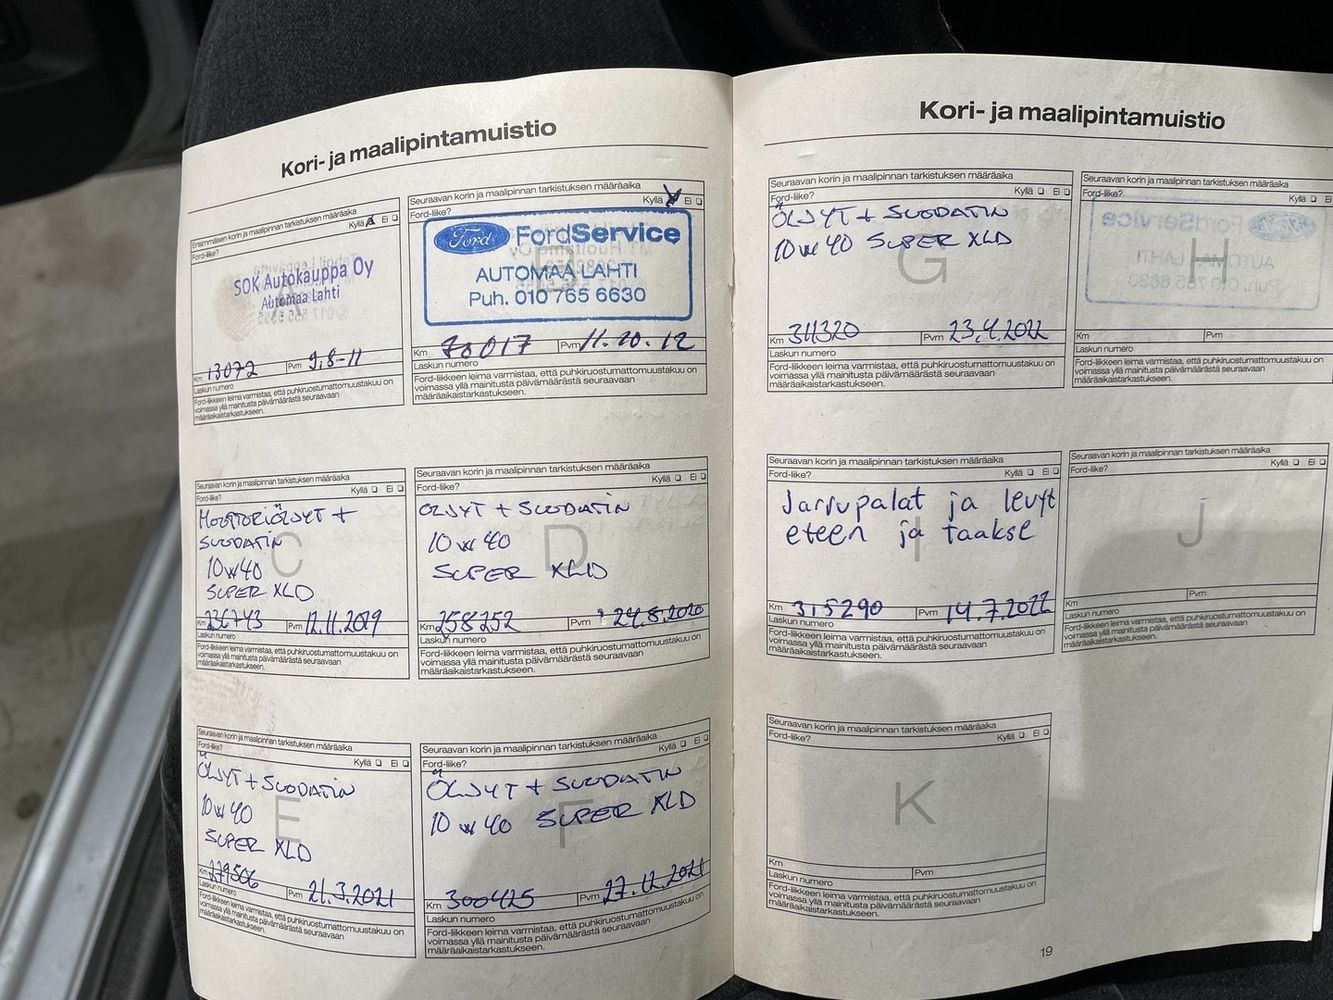 Kori- ja maalipintamuistio
Ensimmäisen korin ja maalipinnan tarkistuksen määräaika
Kyllä Ei
Ford-liike?
A
SOK Autokauppa Oy
Automaa Lahti
Km 13072 Pvm 9.8-11
Laskun numero
Ford-liikkeen leima varmistaa, että puhkiruostumattomuustakuu on
voimassa yllä mainitusta päivämäärästä seuraavaan
määräaikaistarkastukseen.
Seuraavan korin ja maalipinnan tarkistuksen määräaika
Kyllä Ei
Ford-liike?
Ford FordService
AUTOMAA LAHTI
Puh. 010 765 6630
Km 78017 Pvm 11.20.12
Laskun numero
Ford-liikkeen leima varmistaa, että puhkiruostumattomuustakuu on
voimassa yllä mainitusta päivämäärästä seuraavaan
määräaikaistarkastukseen.
Seuraavan korin ja maalipinnan tarkistuksen määräaika
Kyllä Ei
Ford-liike?
C
MOOTTORIÖLJYT +
SUODATIN
10W40
SUPER XLD
Km 236743 Pvm 12.11.2019
Laskun numero
Ford-liikkeen leima varmistaa, että puhkiruostumattomuustakuu on
voimassa yllä mainitusta päivämäärästä seuraavaan
määräaikaistarkastukseen.
Seuraavan korin ja maalipinnan tarkistuksen määräaika
Kyllä Ei
Ford-liike?
D
ÖLJYT + SUODATIN
10W40
SUPER XLD
Km 258252 Pvm 24.8.2020
Laskun numero
Ford-liikkeen leima varmistaa, että puhkiruostumattomuustakuu on
voimassa yllä mainitusta päivämäärästä seuraavaan
määräaikaistarkastukseen.
Seuraavan korin ja maalipinnan tarkistuksen määräaika
Kyllä Ei
Ford-liike?
E
ÖLJYT + SUODATIN
10W40
SUPER XLD
Km 279506 Pvm 21.3.2021
Laskun numero
Ford-liikkeen leima varmistaa, että puhkiruostumattomuustakuu on
voimassa yllä mainitusta päivämäärästä seuraavaan
määräaikaistarkastukseen.
Seuraavan korin ja maalipinnan tarkistuksen määräaika
Kyllä Ei
Ford-liike?
F
ÖLJYT + SUODATIN
10W40 SUPER XLD
Km 300425 Pvm 27.12.2021
Laskun numero
Ford-liikkeen leima varmistaa, että puhkiruostumattomuustakuu on
voimassa yllä mainitusta päivämäärästä seuraavaan
määräaikaistarkastukseen.
Kori- ja maalipintamuistio
Seuraavan korin ja maalipinnan tarkistuksen määräaika
Kyllä Ei
Ford-liike?
G
ÖLJYT + SUODATIN
10W40 SUPER XLD
Km 311320 Pvm 23.4.2022
Laskun numero
Ford-liikkeen leima varmistaa, että puhkiruostumattomuustakuu on
voimassa yllä mainitusta päivämäärästä seuraavaan
määräaikaistarkastukseen.
Seuraavan korin ja maalipinnan tarkistuksen määräaika
Kyllä Ei
Ford-liike?
H
Km Pvm
Laskun numero
Ford-liikkeen leima varmistaa, että puhkiruostumattomuustakuu on
voimassa yllä mainitusta päivämäärästä seuraavaan
määräaikaistarkastukseen.
Seuraavan korin ja maalipinnan tarkistuksen määräaika
Kyllä Ei
Ford-liike?
I
Jarrupalat ja levyt
eteen ja taakse
Km 315290 Pvm 14.7.2022
Laskun numero
Ford-liikkeen leima varmistaa, että puhkiruostumattomuustakuu on
voimassa yllä mainitusta päivämäärästä seuraavaan
määräaikaistarkastukseen.
Seuraavan korin ja maalipinnan tarkistuksen määräaika
Kyllä Ei
Ford-liike?
J
Km Pvm
Laskun numero
Ford-liikkeen leima varmistaa, että puhkiruostumattomuustakuu on
voimassa yllä mainitusta päivämäärästä seuraavaan
määräaikaistarkastukseen.
Seuraavan korin ja maalipinnan tarkistuksen määräaika
Kyllä Ei
Ford-liike?
K
Km
Pvm
Laskun numero
Ford-liikkeen leima varmistaa, että puhkiruostumattomuustakuu on
voimassa yllä mainitusta päivämäärästä seuraavaan
määräaikaistarkastukseen.
19